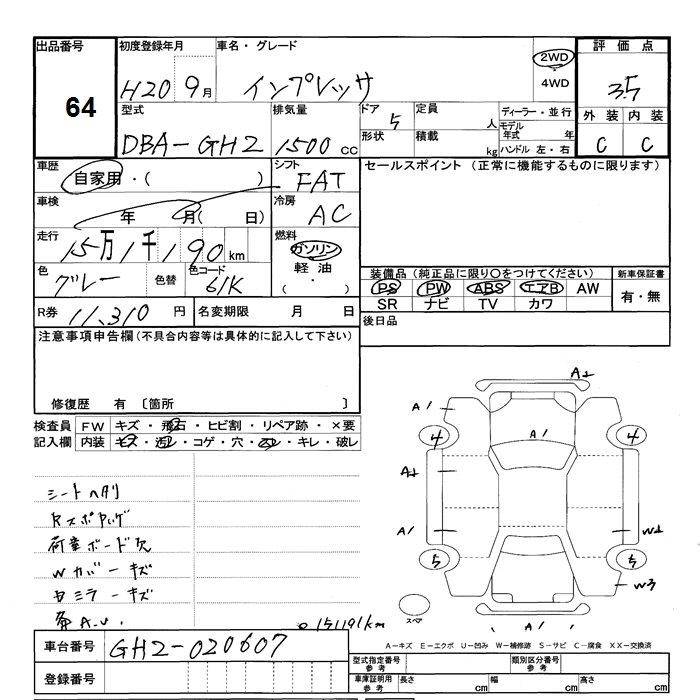 出品番号 初度登録年月 車名・グレード 2WD 評価点
64 H20 9月 インプレッサ 4WD 3.5
型式 排気量 ドア 5 定員 人 ディーラー・並行 外装 内装
DBA-GH2 1500cc 形状 積載 kg モデル年式 年 C C
ハンドル 左・右
車歴 シフト セールスポイント (正常に機能するものに限ります)
自家用・( ) FAT
車検 冷房
年 月( 日) AC
走行 燃料
15万1千190km ガソリン
色 色替 色コード 軽油 装備品(純正品に限り○をつけてください) 新車保証書
グレー 61K ( ・ ) PS PW ABS エアB AW 有・無
SR ナビ TV カワ
R券 11,310円 名変期限 月 日 後日品
注意事項申告欄(不具合内容等は具体的に記入して下さい)
修復歴 有 〔箇所 〕
検査員 FW キズ・飛石・ヒビ割・リペア跡・×要
記入欄 内装 キズ・ ・コゲ・穴・ ・キレ・破レ
A1 A2
4 A1 4
A2
A1 W2
5 5
W3
スペア A1
シートヘタリ
荷室ボード欠
Wカバーキズ
ミラーキズ
A.U.
151191km
A-キズ E-エクボ U-凹み W-補修跡 S-サビ C-腐食 XX-交換済
車台番号 GH2-020607
登録番号
型式指定番号 参考 類別区分番号 参考
車庫証明用 参考 長さ cm 幅 cm 高さ cm